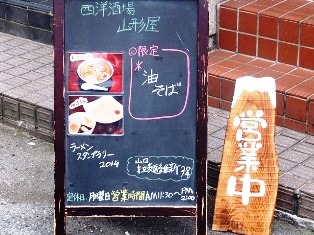 西洋酒場
山形屋
◎限定
油
そば
ラーメン
スタンプラリー
2014
定休日 月曜日 営業時間 AM11:30～PM2:00
営業中